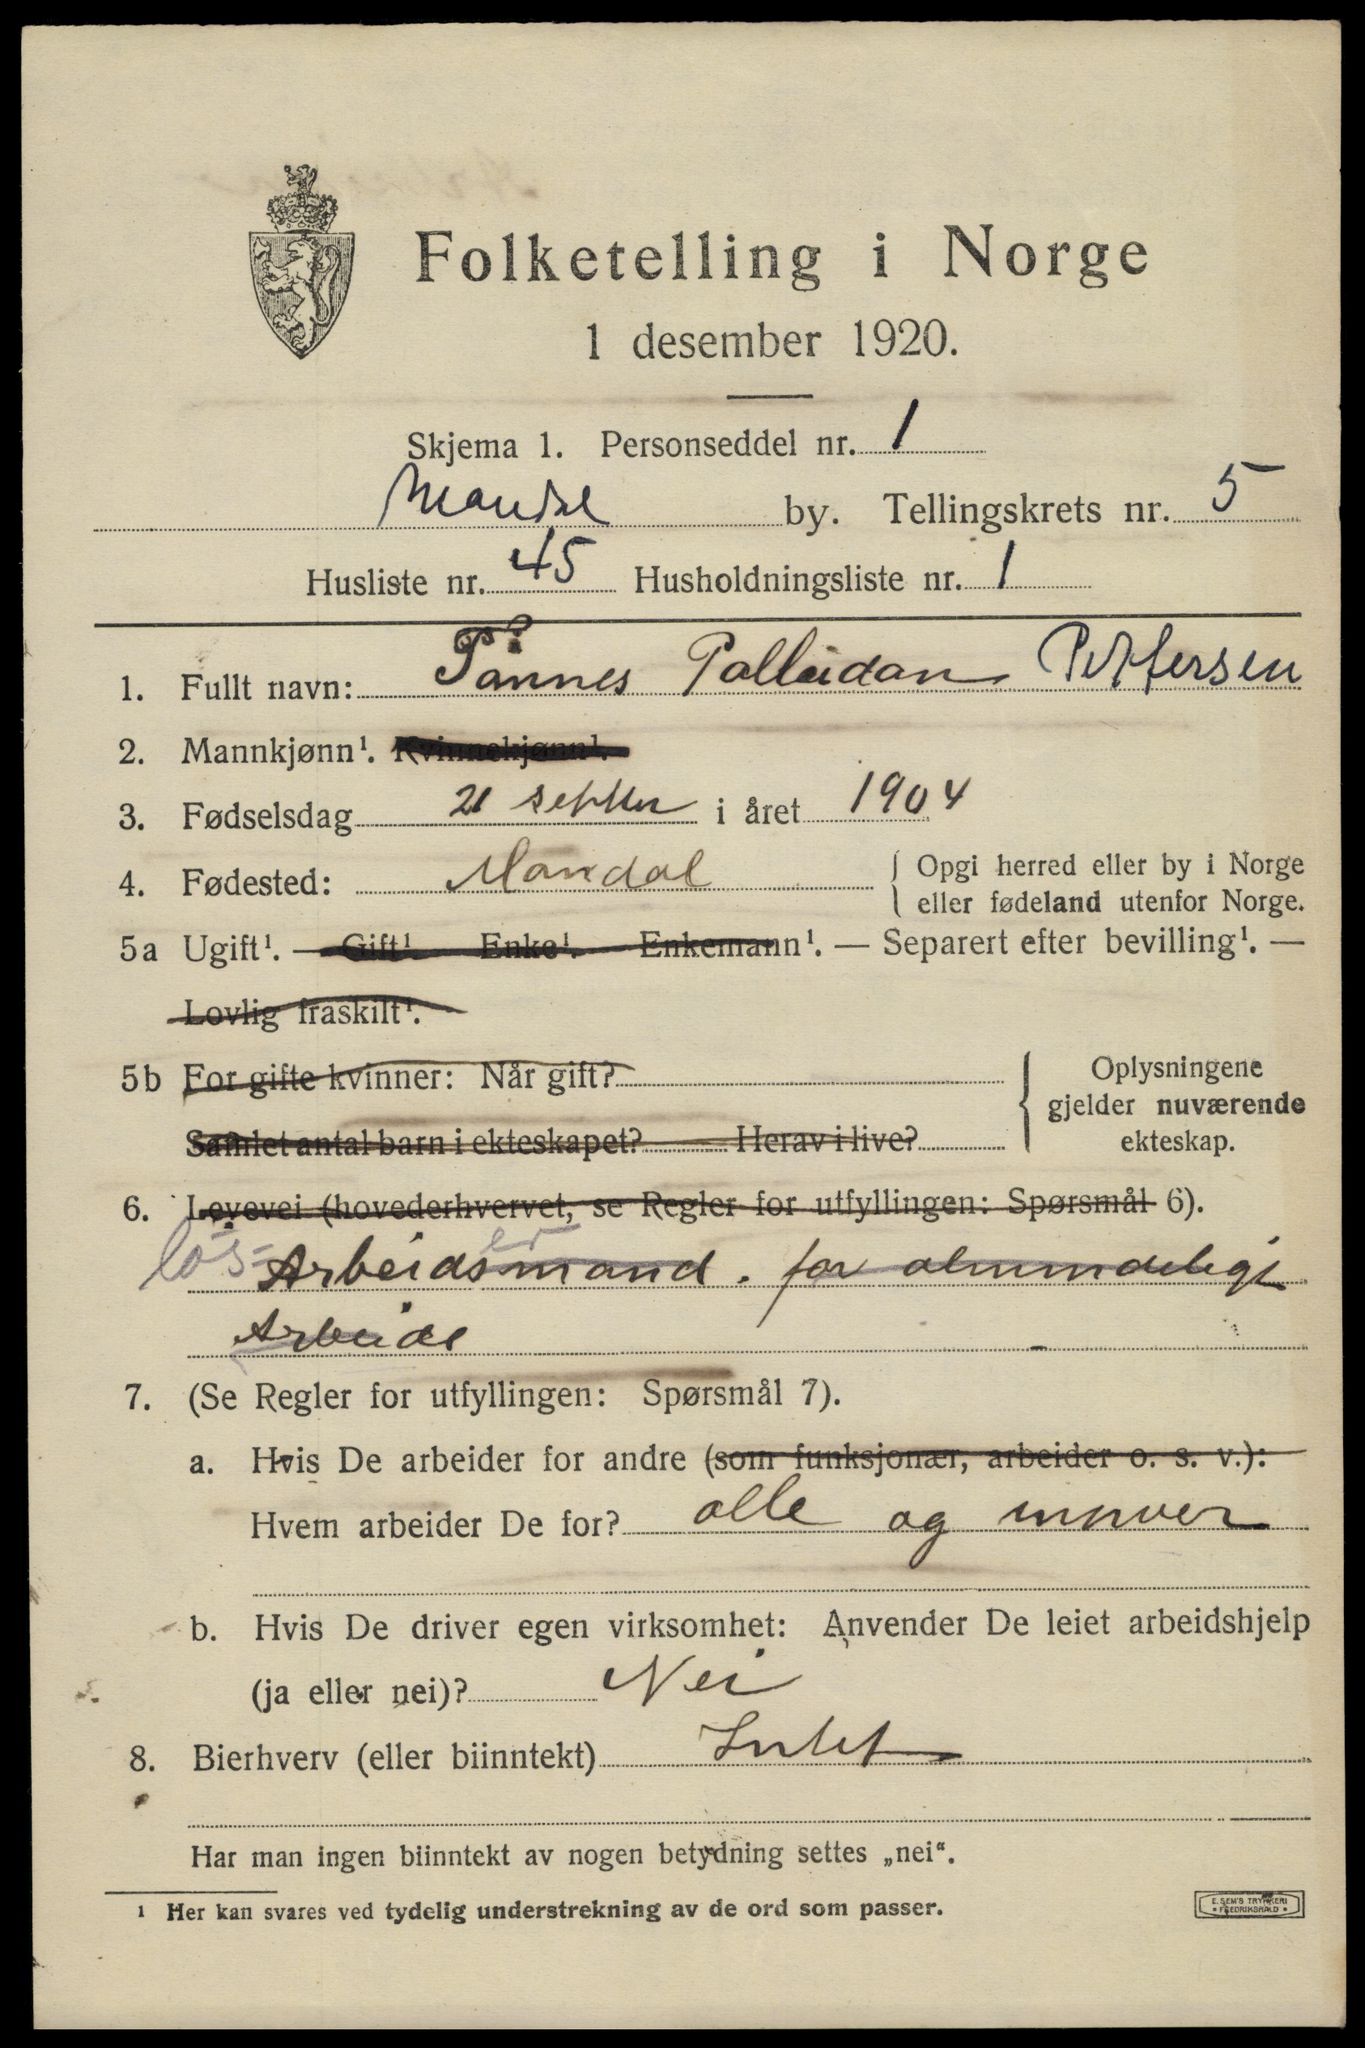 Folketelling i Norge
1 desember 1920.
Skjema 1. Personseddel nr. 1
Mandal by. Tellingskrets nr. 5
Husliste nr. 45 Husholdningsliste nr. 1
1. Fullt navn: Tønnes Palludan Pettersen
2. Mannkjønn¹. Kvinnekjønn¹.
3. Fødselsdag 21 septbr i året 1904
4. Fødested: Mandal { Opgi herred eller by i Norge
eller fødeland utenfor Norge.
5a Ugift¹. — Gift¹. Enke¹. Enkemann¹. — Separert efter bevilling¹. —
Lovlig fraskilt¹.
5b For gifte kvinner: Når gift? { Oplysningene
gjelder nuværende
Samlet antal barn i ekteskapet? Herav i live?
ekteskap.
6. Levevei (hovederhvervet, se Regler for utfyllingen: Spørsmål 6).
løs- Arbeidsmand er . for almindelige
Arbeide
7. (Se Regler for utfyllingen: Spørsmål 7).
a. Hvis De arbeider for andre (som funksjonær, arbeider o. s. v.):
Hvem arbeider De for? alle og
b. Hvis De driver egen virksomhet: Anvender De leiet arbeidshjelp
(ja eller nei)? Nei
8. Bierhverv (eller biinntekt) Intet
Har man ingen biinntekt av nogen betydning settes „nei“.
¹ Her kan svares ved tydelig understrekning av de ord som passer.
E. SEM'S TRYKKERI
FREDRIKSHALD